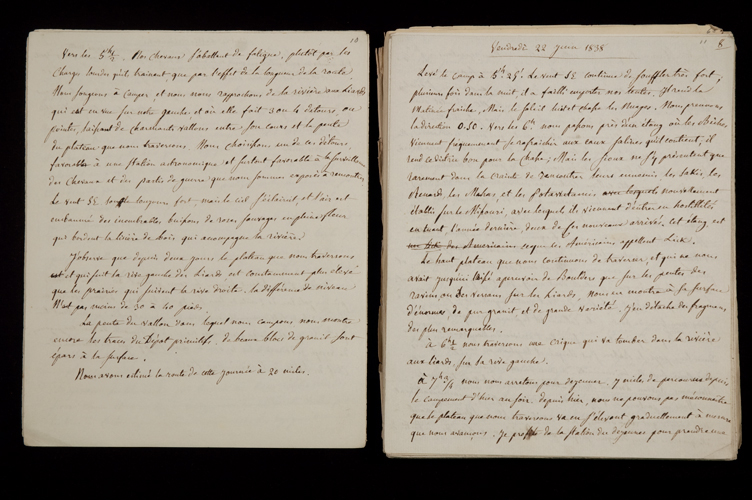 10
Vers les 5h½. Nos chevaux s'abattent de fatigue, plutôt par les
charges lourdes qu'ils trainent que par l'effet de la longueur de la route.
Nous songeons à camper et nous nous rapprochons de la rivière aux liards
qui est en vue sur notre gauche, et où elle fait 3 ou 4 détours, ou
pointes, laissant de charmants vallons entre son cours et la pente
du plateau que nous traversons. Nous choisissons un de ces détours
favorable à une station astronomique et surtout favorable à la surveillance
des chevaux et des partis de guerre que nous sommes exposés à rencontrer
Le vent SE souffle toujours fort, mais le ciel s'éclaircit et l'air est
embaumé des innombrables buissons de roses sauvages en pleine fleur
qui bordent la lisière de bois qui accompagne la rivière.
J'observe que depuis deux jours le plateau que nous traversons
et qui suit la rive gauche des liards est constamment plus élevé
que les prairies qui suivent la rive droite. la différence de niveau
n'est pas moins de 30 à 40 pieds.
La pente du vallon dans lequel nous campons nous montre
encore les traces du dépot primitif. de beaux blocs de granit sont
épars à la surface.
Nous avons estimé la route de cette journée à 20 miles.
11
8
Vendredi 22 Juin 1838
Levé le camp à 5h 25'. Le vent SE continue de souffler très fort,
plusieurs fois dans la nuit, il a failli emporter nos tentes. Il rend la
matinée fraiche, Mais le soleil est et chasse les nuages. Nous prenons
la direction 0.50. Vers les 6h nous passons près d'un étang où les Biches
viennent fréquemment se rafraichir aux eaux salines qu'il contient, il
rend ce district bon pour la chasse; Mais les Sioux ne s'y présentent que
rarement dans la crainte de rencontrer leurs ennemis, les Sakis, les
Renards, les Mahas, et les Potawatamies avec lesquels nouvellement
établis sur le Missouri, avec lesquels ils viennent d'entrer en hostilités
en tuant, l'année dernière, deux de ces nouveaux arrivés. Cet étang, est
des Américains selon les Américains appellent Lick.
Le haut plateau que nous continuons de traverser, et qui ne nous
avait jusqu'ici laissé apercevoir de Boulders que sur les pentes des
ravins ou des versans sur les Liards, nous en montre à sa surface
d'énormes, de pur granit et de grande variété. J'en détache des fragmens
des plus remarquables.
à 6h½ nous traversons une Crique qui va tomber dans la rivière
aux liards, sur la rive gauche.
à 7h¾ nous nous arretons pour dejeuner, 7 miles de parcourus depuis
le campement d'hier au soir. depuis hier, nous ne pouvons pas méconnaitre
que le plateau que nous traversons va en s'élevant graduellement à mesure
que nous avançons. Je profite de la station du dejeuner pour prendre une